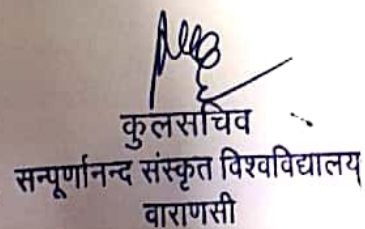 कुलसचिव
सम्पूर्णानन्द संस्कृत विश्वविद्यालय
वाराणसी